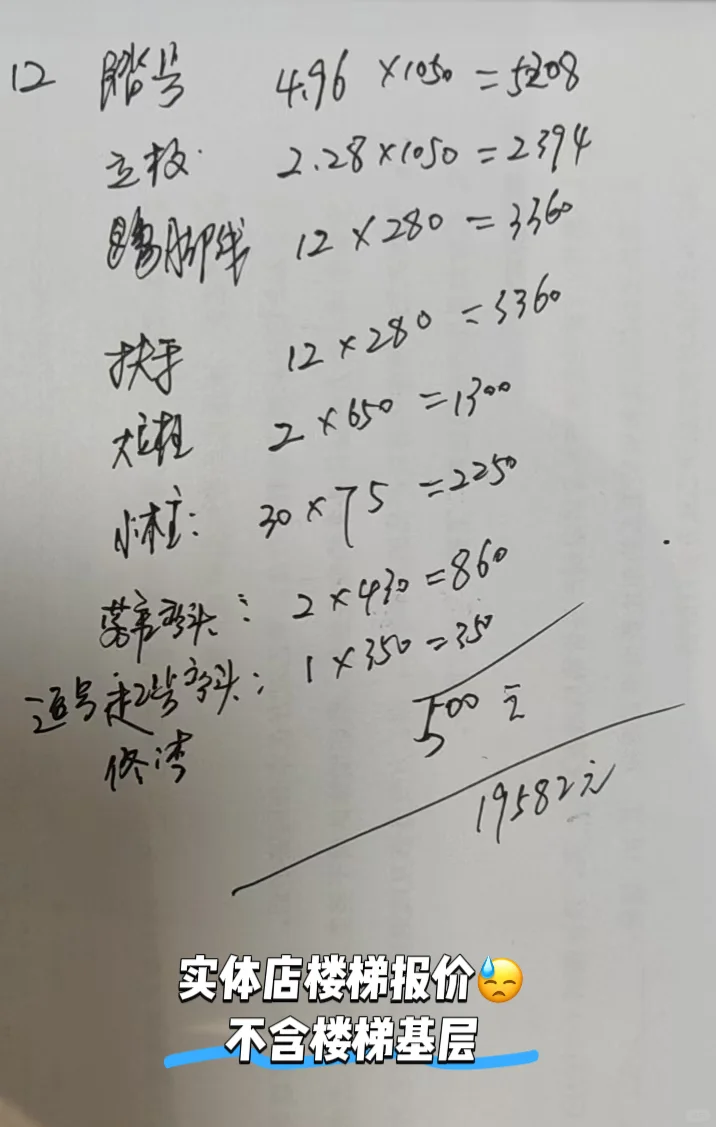 12 踏号 4.96 ×1050 =5208
立板 2.28×1050=2394
踢脚线 12×280=3360
扶手 12×280=3360
大立柱 2×650=1300
小柱: 30×75=2250
弯头: 2×430=860
起步弯头: 1×350=350
修湾 500元
19582元
实体店楼梯报价😓
不含楼梯基层